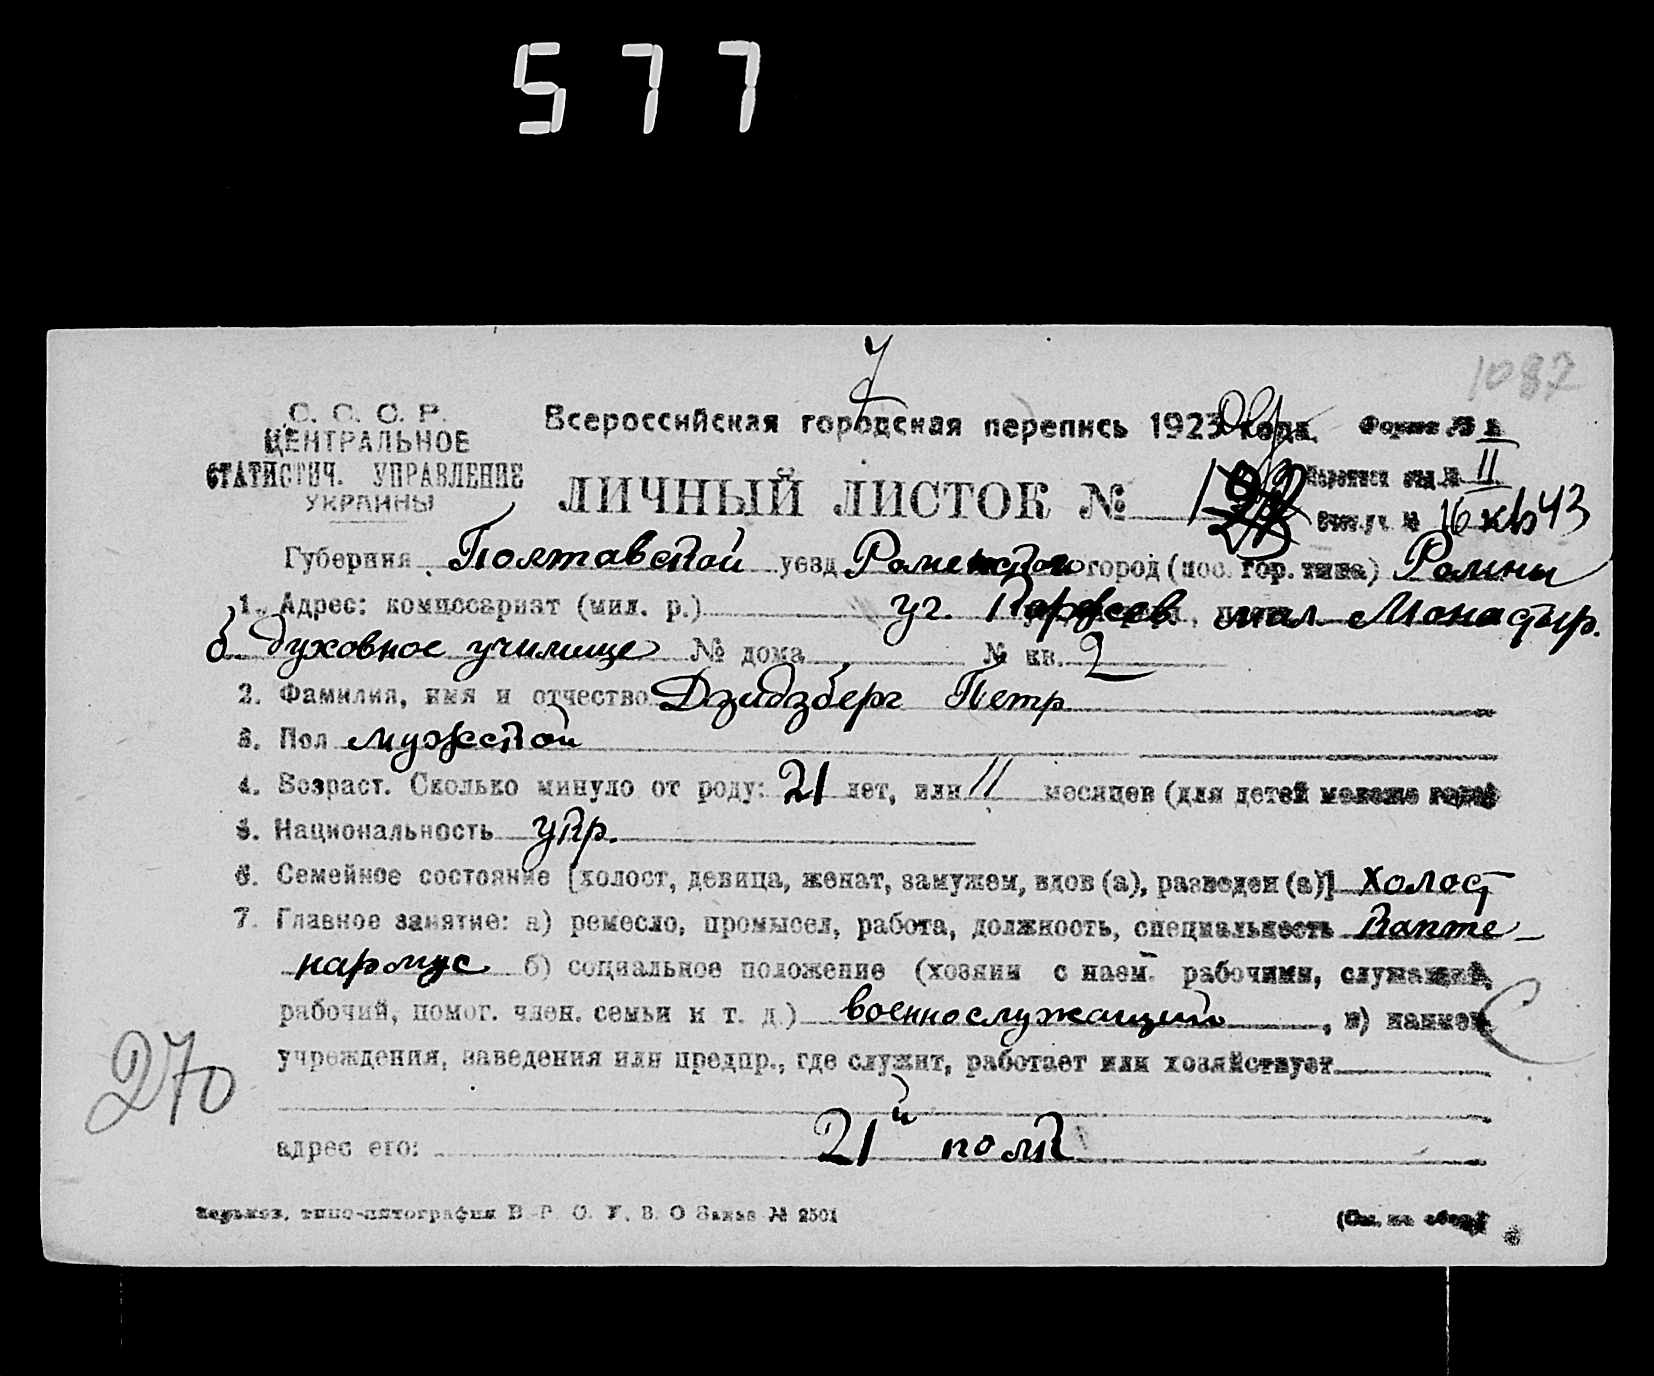 577
1087
С. С. С. Р.
ЦЕНТРАЛЬНОЕ
СТАТИСТИЧ. УПРАВЛЕНИЕ
УКРАИНЫ
Всероссийская городская перепись 1923 года.
Форма №
ЛИЧНЫЙ ЛИСТОК №
II
16 кв 43
Губерния Полтавской уезд Роменского город (пос. гор. типа) Ромны
1. Адрес: комиссариат (мил. р.) уг. мал. Монастыр.
б. духовное училище № дома № кв. 2
2. Фамилия, имя и отчество Дзидзберг Петр
3. Пол мужской
4. Возраст. Сколько минуло от роду: 21 лет, или 11 месяцев (для детей моложе года)
5. Национальность укр.
6. Семейное состояние [холост, девица, женат, замужем, вдов (а), разведен (а)] Холост
7. Главное занятие: а) ремесло, промысел, работа, должность, специальность Капте-
нармус б) социальное положение (хозяин с наем. рабочими, служащий,
рабочий, помог. член. семьи и т. д.) военнослужащий, в) наимен.
учреждения, заведения или предпр., где служит, работает или хозяйствует
270
адрес его: 21й полк
Харьков, типо-литография В. О Заказ № 2501
(См. на обор.)